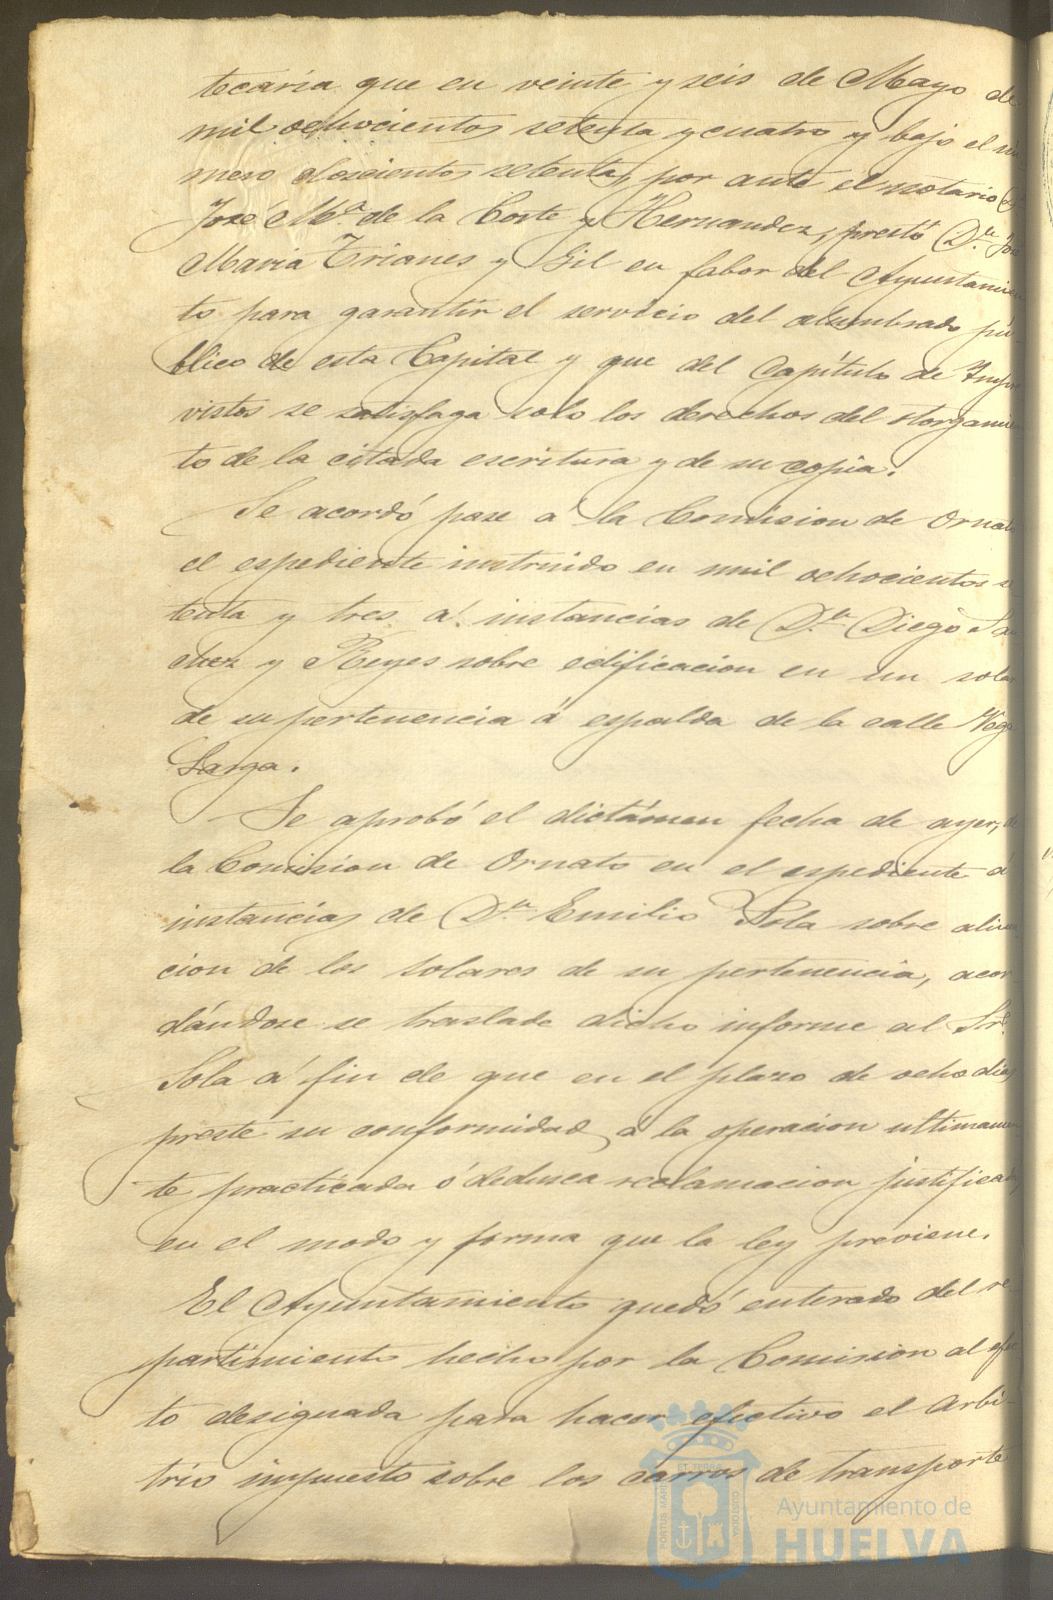 tecaria que en veinte y seis de Mayo de
mil ochocientos setenta y cuatro y bajo el nu
mero doscientos setenta, por ante el notario Dn
José Mª de la Corte y Hernandez, prestó D.n Jose
Maria Trianes y Gil en fabor del Ayuntamien
to para garantir el servicio del alumbrado pú-
blico de esta Capital y que del Capítulo de Impre
vistos se satisfaga solo los derechos del otorgamien
to de la citada escritura y de su copia.
Se acordó pase á la Comision de Ornato
el espediente instruido en mil ochocientos se
tenta y tres á instancias de D.n Diego San
chez y Reyes sobre edificacion en un solar
de su pertenencia á espalda de la calle Vega
Larga.
Se aprobó el dictámen fecha de ayer, de
la Comision de Ornato en el espediente á
instancias de D.n Emilio Sola sobre alinea
cion de los solares de su pertenencia, acor
dándose se traslade dicho informe al Sr.
Sola á fin de que en el plazo de ocho dias
preste su conformidad á la operacion ultimamen
te practicada ó deduzca reclamacion justificada
en el modo y forma que la ley previene.
El Ayuntamiento quedó enterado del re-
partimiento hecho por la Comision al efec
to designada para hacer efectivo el arbi-
trio impuesto sobre los carros de transporte
PORTUS MARIS ET TERRÆ CUSTODIA
Ayuntamiento de
HUELVA